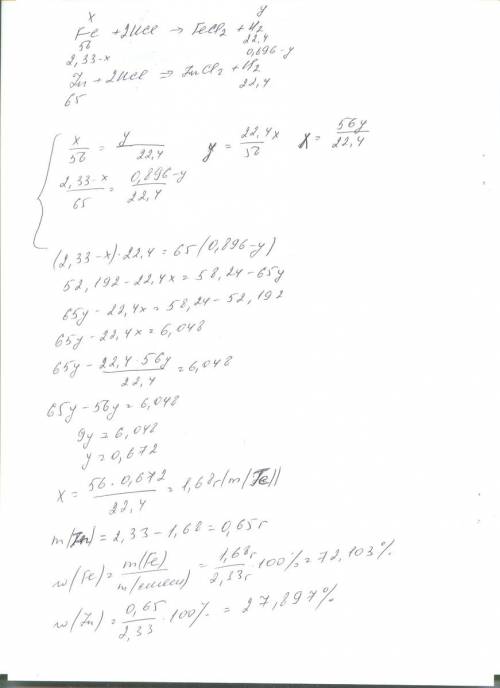 x y
Fe + 2HCl => FeCl2 + H2
56 22,4
2,33-x 0,896-y
Zn + 2HCl => ZnCl2 + H2
65 22,4
x/56 = y/22,4 y = 22,4x/56 x = 56y/22,4
2,33-x/65 = 0,896-y/22,4
(2,33-x)·22,4 = 65(0,896-y)
52,192-22,4x = 58,24-65y
65y-22,4x = 58,24-52,192
65y-22,4x = 6,048
65y - 22,4·56y/22,4 = 6,048
65y-56y = 6,048
9y = 6,048
y = 0,672
x = 56·0,672/22,4 = 1,68г (m(Fe))
m(Zn) = 2,33-1,68 = 0,65г
w(Fe) = m(Fe)/m(смеси) = 1,68г/2,33г·100% = 72,103%
w(Zn) = 0,65/2,33·100% = 27,897%